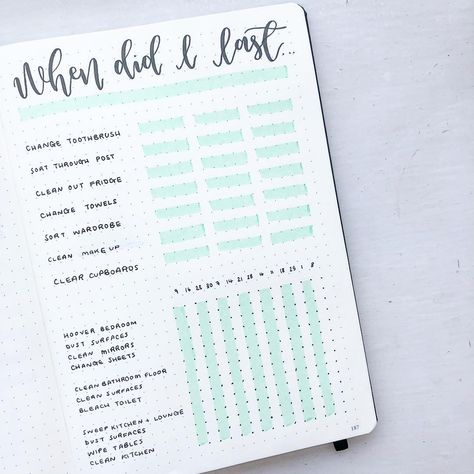 When did I last...
CHANGE TOOTHBRUSH
SORT THROUGH POST
CLEAN OUT FRIDGE
CHANGE TOWELS
SORT WARDROBE
CLEAN MAKE UP
CLEAR CUPBOARDS
HOOVER BEDROOM
DUST SURFACES
CLEAN MIRRORS
CHANGE SHEETS
CLEAN BATHROOM FLOOR
CLEAN SURFACES
BLEACH TOILET
SWEEP KITCHEN + LOUNGE
DUST SURFACES
WIPE TABLES
CLEAN KITCHEN
187